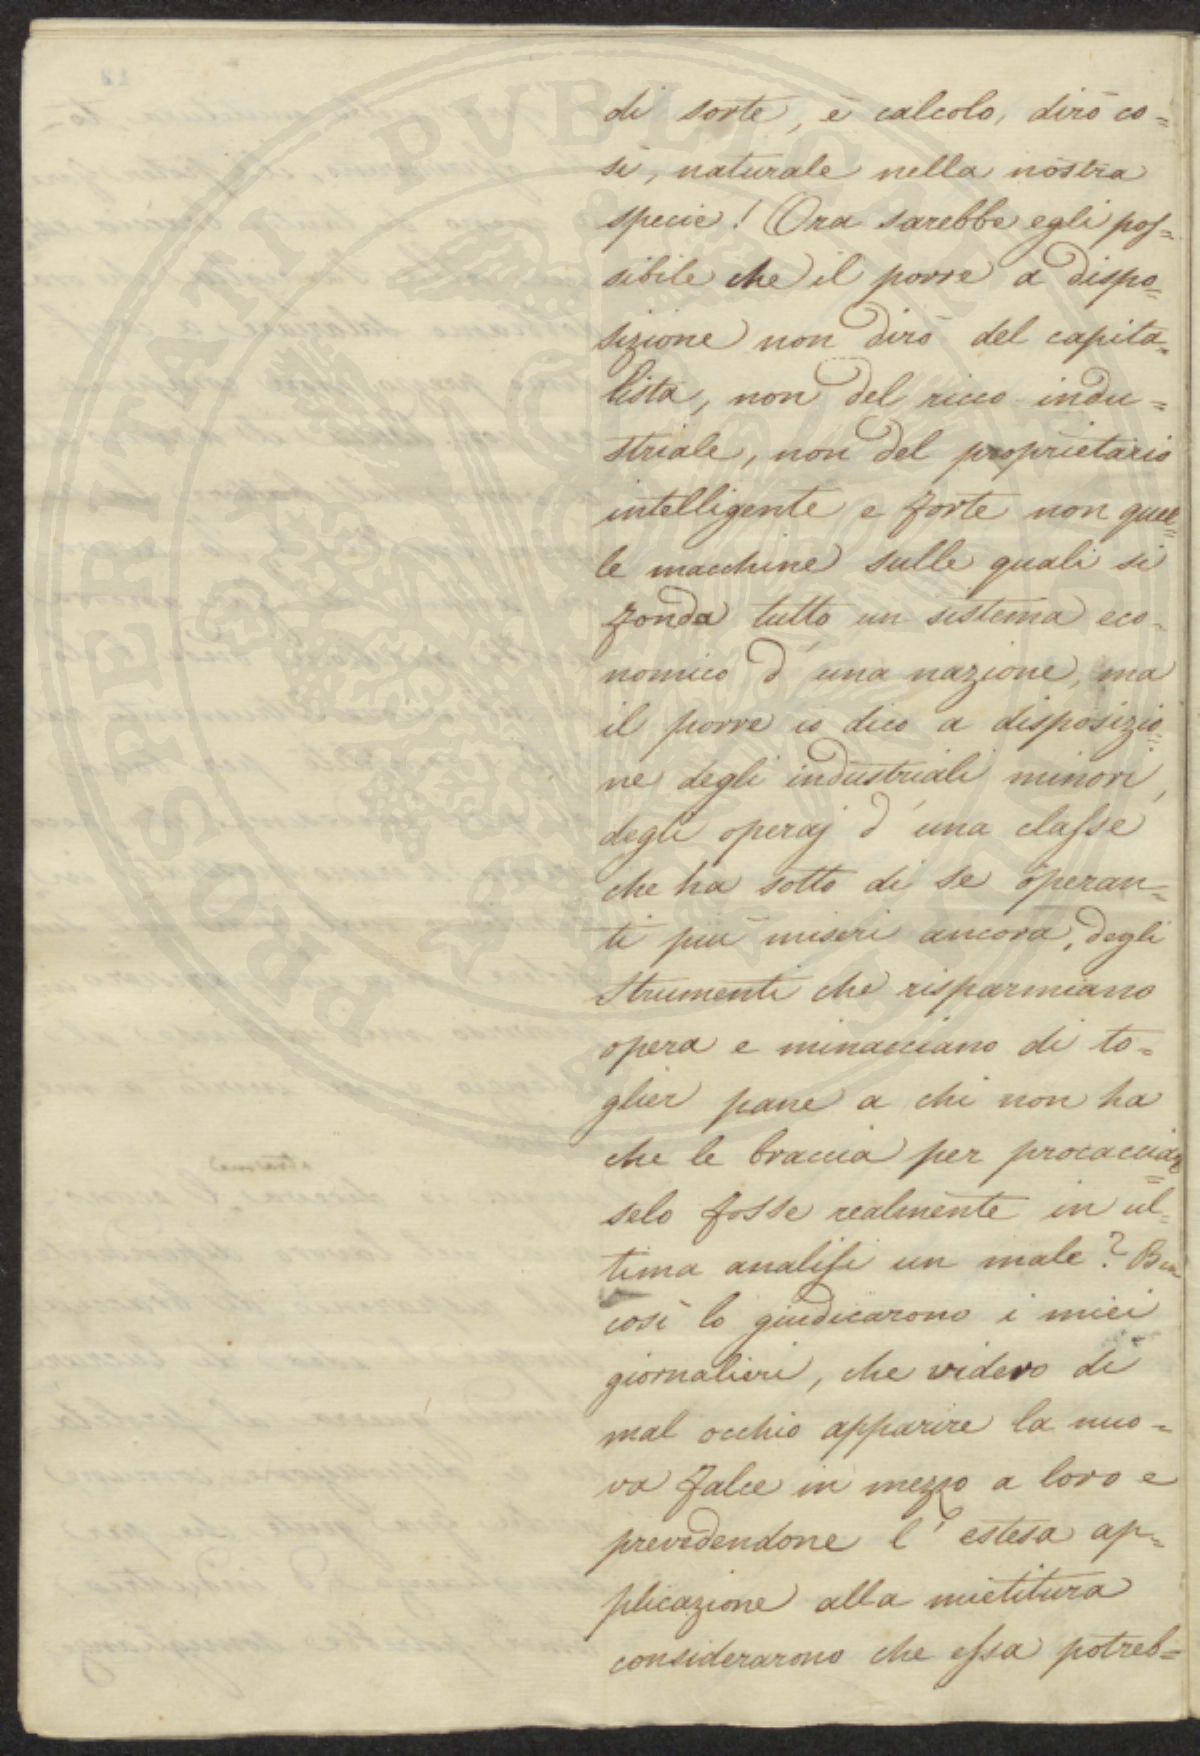 di sorte, è calcolo, dirò co=
sì, naturale nella nostra
specie! Ora sarebbe egli pos=
sibile che il porre a dispo=
sizione non dirò del capita=
lista, non del ricco indu=
striale, non del proprietario
intelligente e forte non quel=
le macchine sulle quali si
fonda tutto un sistema eco=
nomico d'una nazione, ma
il porre io dico a disposizio=
ne degli industriali minori,
degli operaj d'una classe
che ha sotto di se operan=
ti più miseri ancora, degli
strumenti che risparmiano
opera e minacciano di to=
glier pane a chi non ha
che le braccia per procacciar=
selo fosse realmente in ul=
tima analisi un male? Ben
così lo giudicarono i miei
giornalieri, che videro di
mal occhio apparire la nuo=
va falce in mezzo a loro e
prevedendone l'estesa ap=
plicazione alla mietitura
considerarono che essa potreb=
PROSPERITATI PVBLICAE